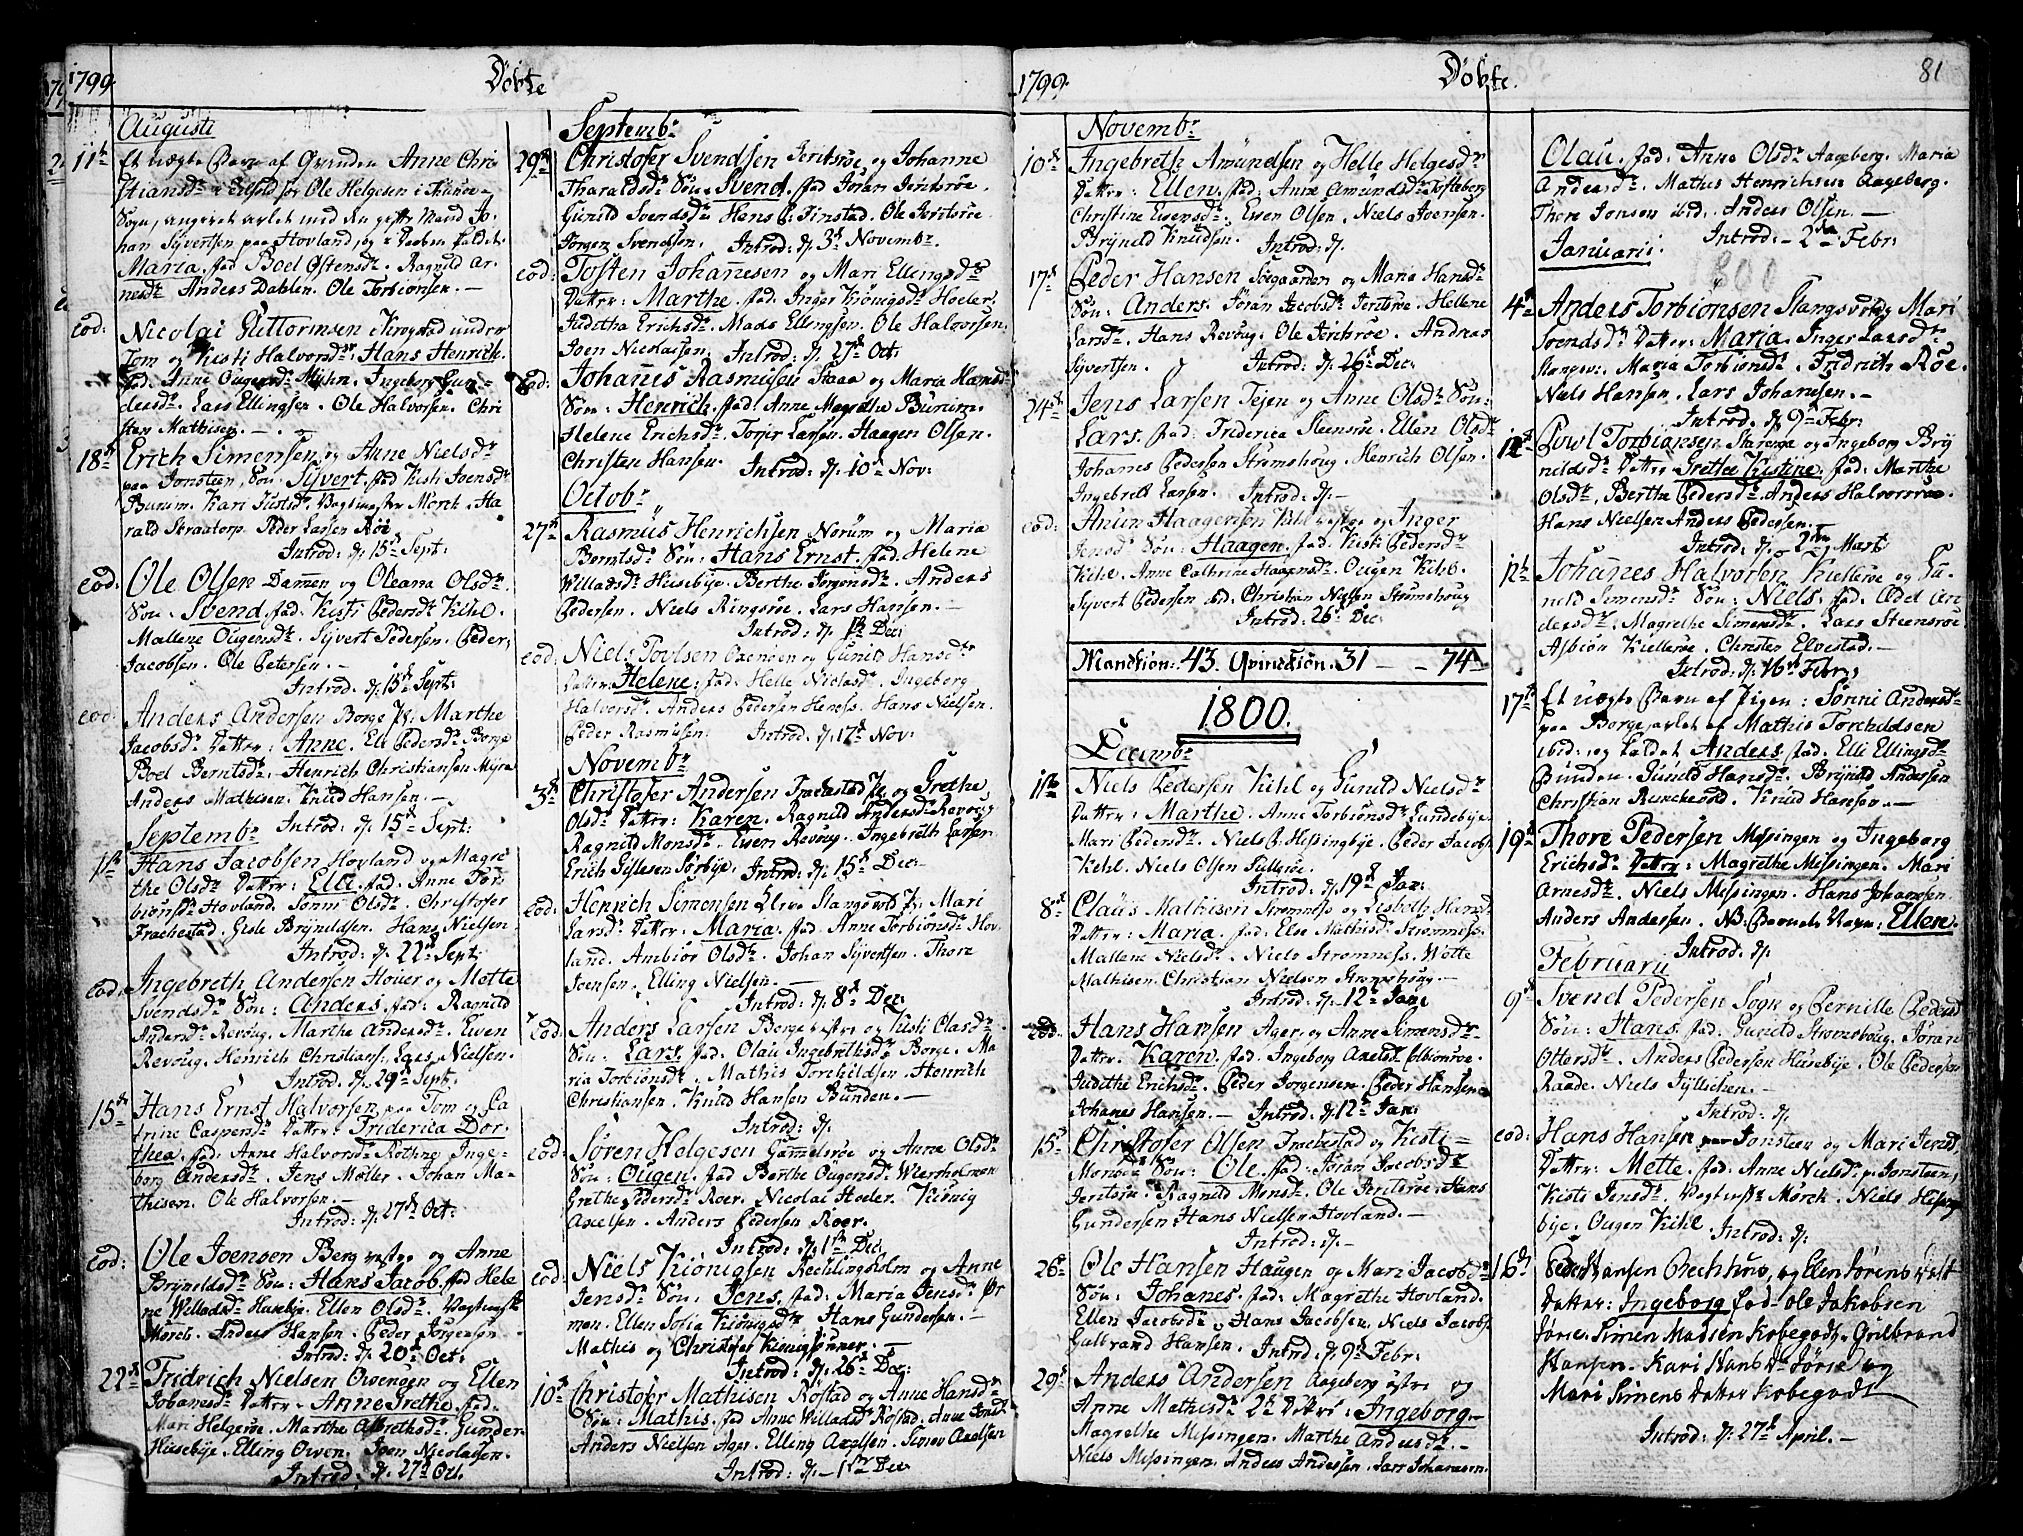 1799.
Döbte
Augusti
11te Et uægte Barn af Qvinden Anne Chri
stiansdr
Ole Helgesen i
Søgn, angivet avlet med den gifte Mand Jo-
han Sÿvertsen paa Hovland, og i Daaben kaldet
Maria. fad Boel Ostensdr. Ragnild Ar-
nesdr Anders Dahlen. Ole Torbiönsen.
eod: Nicolai Guttormsen Krogstad under
Tom og Kisti Halvorsdr Hans Henrich.
fad. Anne Ougensdr. Ingeborg Gun-
dersdr. Lars Ellingsen. Ole Halvorsen. Chri
sten Mathisen.
18de Erich Simensen og Anne Nielsdr
paa Jonsteen, Sön: Sÿvert. fad Kisti Joensdr
Burum. Kari Justsdr. Vagtmester Morck. Ha
rald Skraatorp. Peder Larsen Röe
Introd: d. 15de Sept:
eod: Ole Olsen Damen og Oleana Olsdr
Sön. Svend. fad. Kisti Pedersdr Kihl.
Mallene Ougensdr. Sÿvert Pedersen. Peder
Jacobsen. Ole Petersen.
Introd. d. 15de Sept:
eod: Anders Andersen Borge Pl: Marthe
Jacobsdr Datter: Anne. Eli Pedersdr Borge
Boel Berntsdr. Henrich Christiansen Mÿra
Anders Mathisen. Knud Hansen.
Introd: d. 15de Sept:
Septembr
1te Hans Jacobsen Hovland og Magre
the Olsdr Datter: Elli. fad: Anne Tor
biönsdr Hovland. Sönni Olsdr. Christofer
Frachestad. Gisle Brÿnildsen. Hans Nielsen
Introd: d. 22de Sept:
eod: Ingebreth Andersen Houer og Mette
Svendsdr Sön: Anders. fad: Ragnild
Andersdr Revoug. Marthe Andersdr. Even
Revoug. Heinrich Christians. Lars Nielsen.
Introd: d. 29de Sept:
15de Hans Ernst Halvorsen paa Tom og Ca
trine Caspersdr Datter: Friderica Dor
thea. fad: Anne Halvorsdr Rothne Inge-
borg Andersdr. Jens Möller. Johan Ma-
thisen. Ole Halvorsen.
Introd: d. 27de Oct:
eod: Ole Joensen Berg vestre og Anne
Brÿnildsdr Sön: Hans Jacob. fad Hele
ne Willadsdr Husebÿe. Ellen Olsdr. Vagtmestr
Morch. Anders Hansen. Peder Jörgensen
Introd: d. 20de Oct:
22de Fridrich Nielsen Owengen og Ellen
Johanesdr Datter: Anne Grethe. fad:
Mari Helgeröe. Marthe Albrethsdr. Gunder
Husebÿe. Elling Owen. Joen Nicolaisen.
Introd: d. 27de Oct.
Septembr
29de Christofer Svendsen Jeritsröe og Johanne
Tharaldsdr Sön. Svend. fad Jöran Jeritsröe.
Gunild Svendsdr Hans P: Finstad. Ole Jeritsröe
Jörgen Svendsen. Introd: d. 3de Novembr.
eod: Tosten Johanesen og Mari Ellingsdr
Datter: Marthe. fad: Inger Königsdr Hoeler.
Juditha Erichsdr. Mads Ellingsen. Ole Halvorsen.
Joen Nicolaisen. Introd: d. 27de Oct:
eod: Johanes Rasmusen Staae og Maria Hansdr
Sön: Henrich. fad: Anne Magrethe Burum.
Helene Erichsdr. Torjer Larsen. Haagen Olsen.
Christen Hansen. Introd: d. 10de Nov:
Octobr
27de Rasmus Henrichsen Norum og Maria
Berntsdr Sön: Hans Ernst. fad: Helene
Willadsdr Husebÿe. Berthe Jörgensdr. Anders
Pedersen. Niels Ringsröe. Lars Hansen.
Introd: d. 1te Dec:
eod: Niels Poulsen Oxenöen og Gunild Hansdr
Datter: Helene: fad: Helle Niclasdr. Ingeborg
Halvorsdr. Anders Pedersen Henæss. Hans Nielsen.
Peder Rasmusen. Introd: d. 17de Nov:
Novembr
3de Christofer Andersen Frachestad Pl: og Grethe
Olsdr Datter: Karen. Ragnild Andersdr Revoug
Ragnild Monsdr. Even Revoug. Ingebreth Larsen
Erich Gislesen Sörbÿe. Introd: d. 15de Dec:
eod: Henrich Simensen Slangsvold Pl: Mari
Larsdr Datter: Maria. fad: Anne Torbiönsdr Hov
land. Ambiör Olsdr. Johan Sÿvertsen. Thore
Joensen. Elling Nielsen.
Introd: d. 8de Dec:
eod: Anders Larsen Berge vestre og Kisti Clasdr
Sön: Lars. fad: Olau Ingebrethsdr Borge. Ma
ria Torbiönsdr. Mathis Torchildsen. Henrich
Christiansen. Knud Hansen Bunden.
Introd: d.
eod: Sören Helgesen Gammelröe og Anne Olsdr
Sön: Ougen. fad Berthe Ougensdr Wiersholmen
Grethe Pedersdr Roer. Nicolai Hoeler. König
Axelsen. Anders Pedersen Roer.
Introd: d. 1te Dec:
eod: Niels Königsen Rechlingholm og Anne
Jensdr Sön: Jens. fad: Maria Jensdr Ör
men. Ellen Sofia Königsdr Hans Gundersen.
Mathis og Christofer Königsönner.
Introd: d. 26de Dec:
10de Christofer Mathisen Röstad og Anne Hansdr
Sön: Mathis. fad Anne Willadsdr Röstad. Anne Jonsdr
Anders Nielsen Ager. Elling Axelsen. Simon Axelsen
Introd: d. 1te Dec
1799.
Döbte.
81
Novembr
10de Ingebreth Amundsen og Helle Helgesdr
Datter: Ellen. fad: Anne Amundsdr Tofteberg
Christine Evensdr. Even Olsen. Niels Joensen.
Brÿnild Knudsen. Introd: d.
17de Peder Hansen Söegaarden og Maria Hansdr
Sön: Anders. Jöran Jacobsdr Jeritsröe. Hellene
Larsdr. Hans Revoug. Ole Jeritsröe. Andreas
Sÿvertsen. Introd: d. 26de Dec:
24de Jens Larsen Tejen og Anne Olsdr Sön:
Lars. fad: Friderica Steensröe. Ellen Olsdr
Johanes Pedersen Strömshoug. Henrich Olsen.
Ingebret Larsen. Introd: d.
eod: Anun Haagensen Kihl vestre og Inger
Jensdr Sön: Haagen. fad: Kisti Pedersdr
Kihl. Anne Cathrine Haagensdr. Ougen Kihl.
Sÿvert Pedersen ibid. Christian Nielsen Strömshoug
Introd: 26de Dec:
Mandkiön: 43. Qvindkiön. 31 — 74
1800.
Decembr
1te Niels Pedersen Kihl og Gunild Nielsdr
Datter: Marthe. Anne Torbiönsdr Lundebÿe.
Mari Pedersdr. Niels P. Hessingbÿe. Peder Jacobs.
Kihl. Niels Olsen
Introd: d. 19de Jan:
8de Claus Mathisen Strömnæss og Lisbeth Hansdr
Datter: Maria. fad: Else Mathisdr Strömness.
Mallene Nielsdr. Niels Strömness. Wotte
Mathisen. Christian Nielsen Strömshoug
Introd: d. 12te Jan:
eod: Hans Hansen Ager og Anne Simensdr
Datter. Karen. fad: Ingeborg Axelsdr Esbiönröe.
Judithe Erichsdr. Peder Jorgensen. Peder Hansen.
Johanes Hansen. Introd: d. 12te Jan:
15de Christofer Olsen Frachestad og Kisti
Monsdr Sön: Ole. fad. Jöran Jacobsdr
Jeritsröe. Ragnild Monsdr. Ole Jeritsröe. Hans
Gundersen. Hans Nielsen Hovland.
Introd: d.
26de Ole Hansen Haugen og Mari Jacobsdr
Sön: Johanes. fad: Magrethe Hovland.
Ellen Jacobsdr. Hans Jacobsen. Niels Jacobs.
Gulbrand Hansen. Introd: d. 9de Febr:
29de Anders Andersen Aageberg östre og
Anne Mathisdr 2de Datter: Ingeborg
Magrethe Messingen. Marthe Andersdr.
Niels Messingen. Anders Andersen. Lars Johanesen.
Olau. fad: Anne Olsdr Aageberg. Maria
Andersdr. Mathis Henrichsen Aageberg.
Thore Jonsen ibid. Anders Olsen.
Introd: 2den Febr:
Januarii.
800
4de Anders Torbiönsen Slangsvold Mari
Svendsdr Datter: Maria. Inger Larsdr
Slangsv. Maria Torbiönsdr. Fridrich Röe.
Niels Hansen. Lars Johanesen.
Introd: d. 9de Febr:
12te Powl Torbiönsen Starenge og Ingeborg Brÿ
nildsdr Datter Grethe Kistine. fad: Marthe
Olsdr. Berthe Pedersdr. Anders Halvorsröe.
Hans Nielsen Anders Pedersen.
Introd: d. 2den Mart
12te Johanes Halvorsen Kielleröe og Gu
nild Simensdr Sön: Niels. fad: Adel An
dersdr. Magrethe Simensdr. Lars Steensröe
Asbiön Kielleröe. Christen Elvestad.
Introd: d. 16de Febr:
17de Et uægte Barn af Pigen: Sönni Andersdr
paa Borge, avlet af Mathis Torchildsen
ibid: og kaldet Anders. fad. Elli Ellingsdr
Bunden. Gunild Hansdr. Brÿnild Andersen
Christian Knud Hansen.
19de Thore Pedersen Messingen og Ingeborg
Erichsdr Datter: Magrethe Messingen. Mari
Arnesdr. Niels Messingen. Hans Johansen.
Anders Andersen. NB. Barnets Navn: Ellen.
Introd: d.
Februarii
9de Svend Pedersen Sogn og Pernille Pedersdr
Sön: Hans. fad: Gunild Strömshoug. Jöran
Ottersdr. Anders Pedersen Husebÿe. Ole Pedersen
Raade. Niels Gÿllichen.
Introd: d.
eod: Hans Hansen paa Jonsteen og Mari Jensdr
Datter: Mette. fad: Anne Nielsdr p. Jonsteen.
Kisti Jensdr. Vagtmestr Mörck. Niels Hessing
bÿe. Ougen Kihl. Introd: d.
16de Peder Hansen Prechhus, og Ellen Sörens Datt
Datter: Ingeborg fad- ole Jakobsen
Sörie. Simen Madsen Kobegodt, Gulbrand
Hansen. Kari Hans Dr Sörie og
Mari Simens Datter Kobegodt
Introd: d. 27de April.